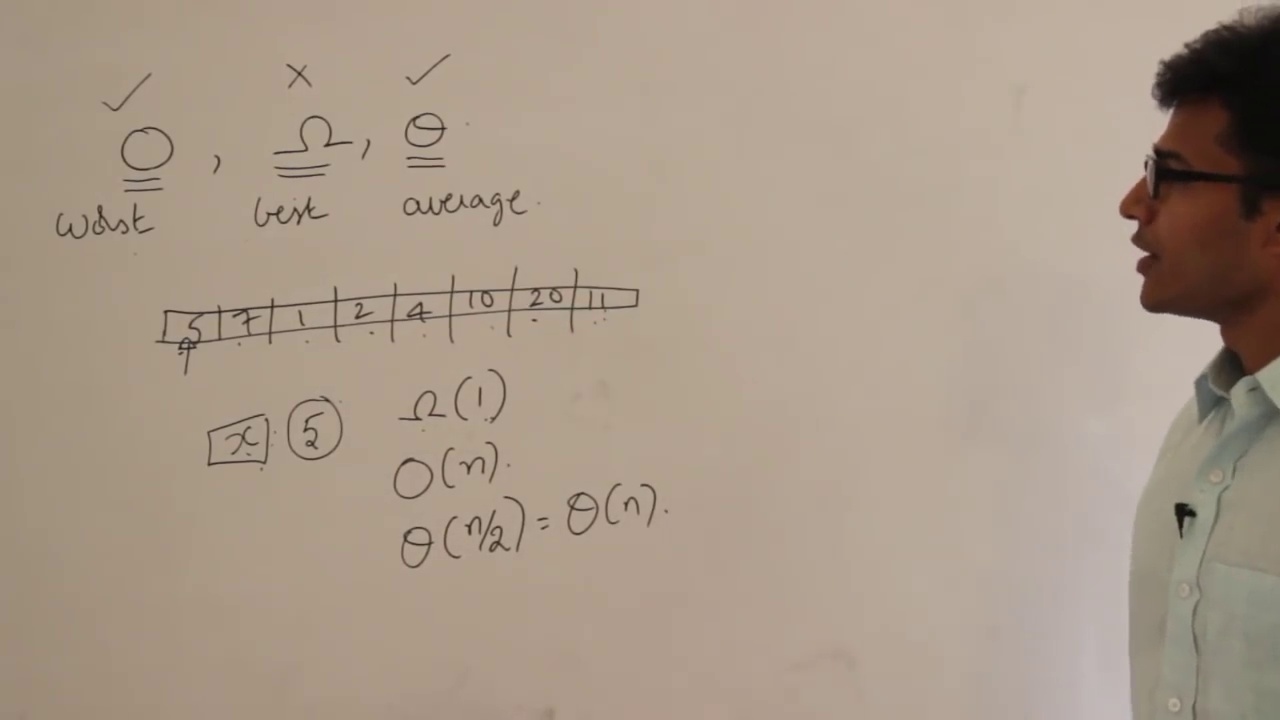 ✓ × ✓
O , Ω , θ
worst best average.
5 7 1 2 4 10 20 11
x : 5 Ω(1)
O(n).
θ(n/2) = θ(n).